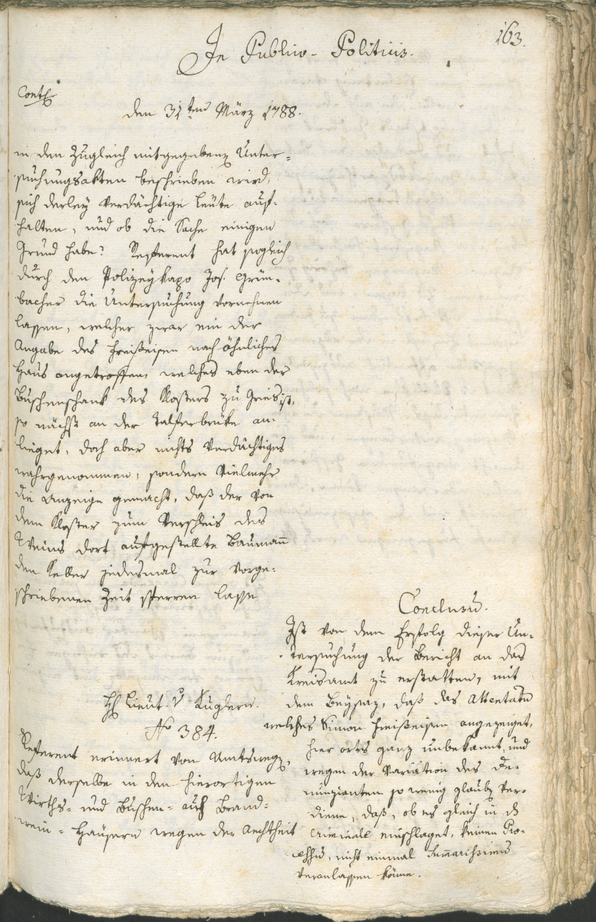 163.
In Publico-Politicis.
Contle
den 31ten März 1788.
in den zugleich mitgegebenen Unter-
suchungsakten beschrieben wird,
sich derley verdächtige Leute auf-
halten, und ob die Sache einigen
Grund habe? Referent hat sogleich
durch den Polizeykapo Jos. Grün-
bacher die Untersuchung vornehmen
lassen, welcher zwar ein der
Angabe des Freißeisen nach ähnliches
Haus angetroffen, welches eben der
Buschenschank des Klosters zu Gries ist,
so nächst an der Talferbrüke an-
lieget, doch aber nichts verdächtiges
wahrgenommen, sondern vielmehr
die Anzeige gemacht, daß der von
dem Kloster zum Verschleis des
Weins dort aufgestellte Baumann
den Keller jedesmal zur vorge-
schriebenen Zeit sperren lasse
Conclusum.
Ist von dem Erfolg dieser Un-
tersuchung der Bericht an das
Kreisamt zu erstatten, mit
dem Beysaz, daß das Attentatum
welches Simon Freißeisen angezeiget,
hier orts ganz unbekannt, und
wegen der Variation des De-
nunzianten so wenig glaub ver-
diene, daß, ob es gleich in das
Criminale einschlaget, keinen Pro-
cessum, nicht einmal Summarissimum
veranlassen könne.
H Lieut. v Kuglern.
No 384.
Referent erinnert von Amtswegen,
daß derselbe in den hierortigen
Wirths- und Buschen- auch Brand-
wein-Häusern wegen der Aechtheit